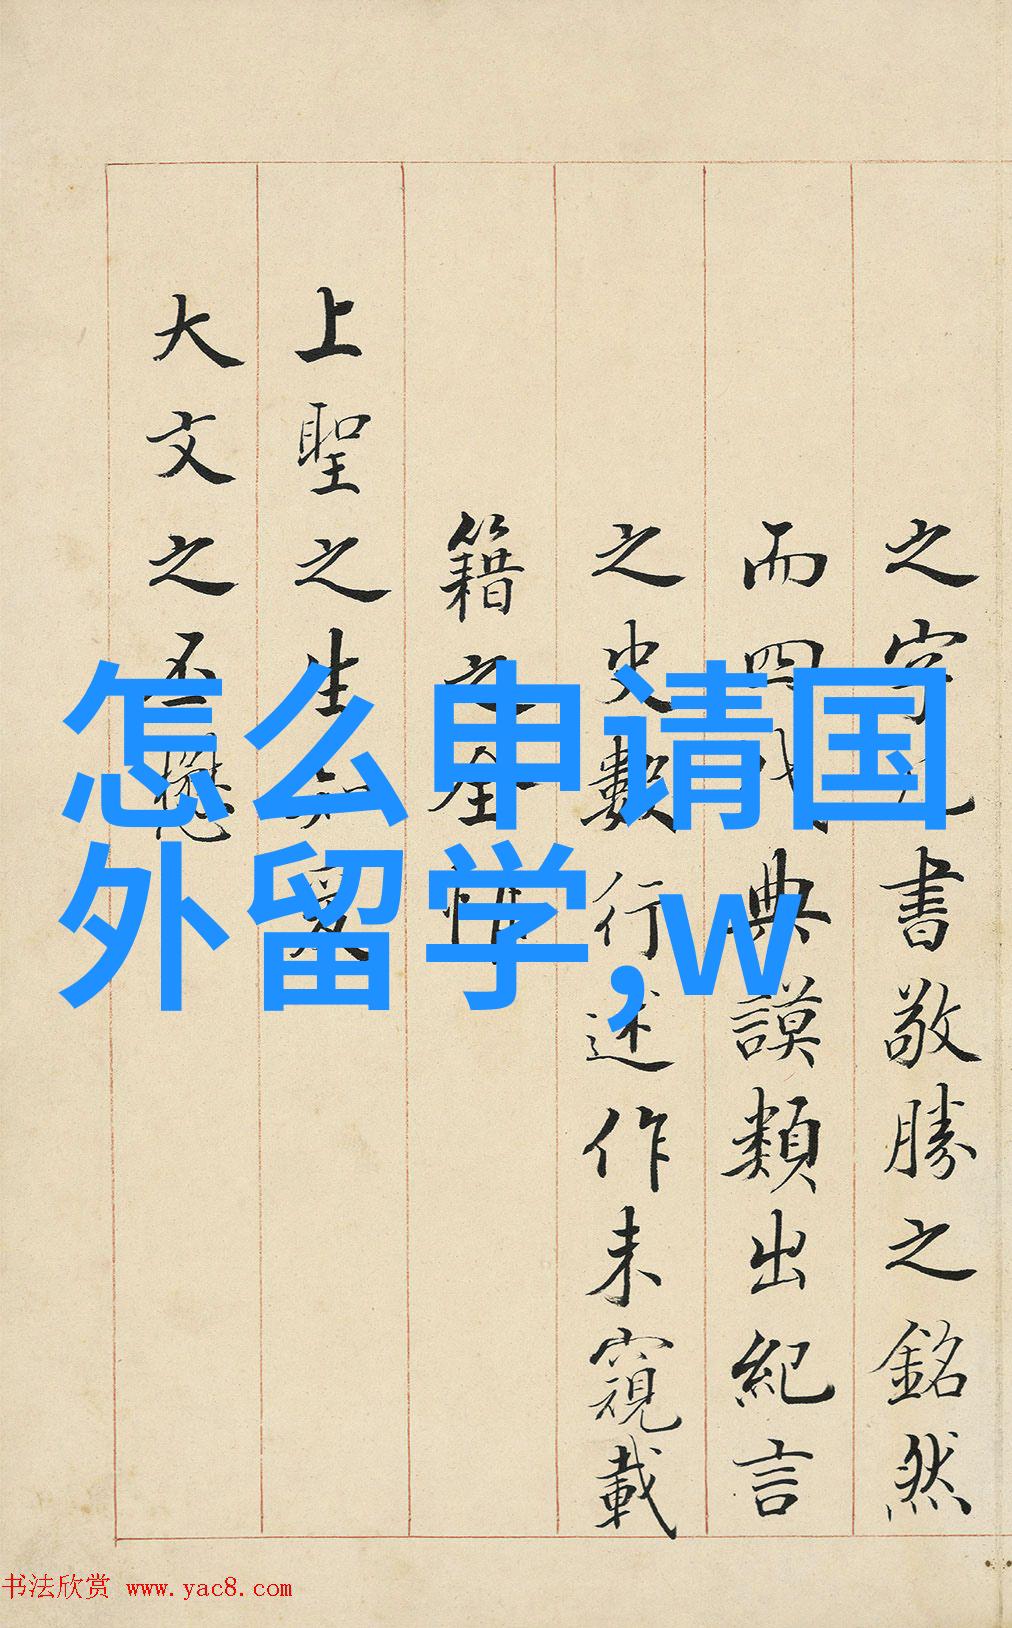 怎么申请国
外留学,w
之字書敬勝之銘然
而四典謨類出紀言
之史數行述作未窺載
籍之全惟
上聖之生
大文之丕懋
书法欣赏 www.yac8.com